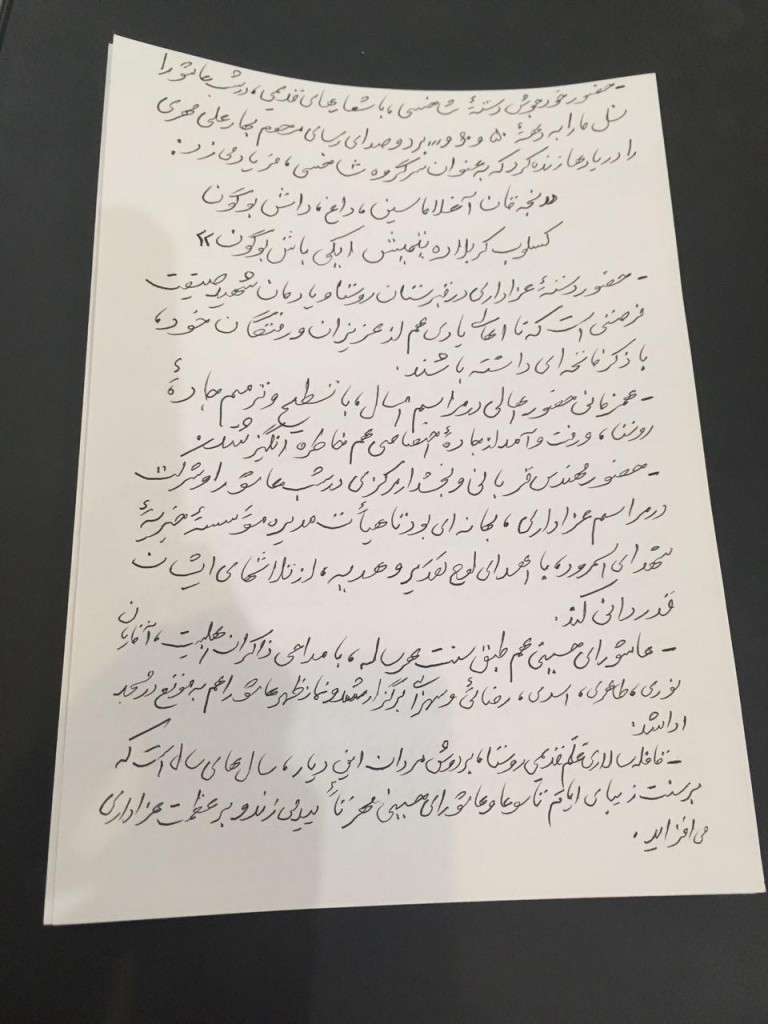 - حضور خودجوش دستهٔ شاخسی، با شعارهای قدیمی، در شب عاشورا
نسل ما را به دههٔ ۵۰ و ۶۰ و... برد و صدای رسای مرحوم بهارعلی مهری
را در یادها زنده کرد که به عنوان سرگروه شاخسی، فریاد می زد:
«نجه قان آغلاماسین، داغ، داش بوگون
کسلوب کربلاده یتمیش ایکی باش بوگون»
- حضور دستهٔ عزاداری در قبرستان روستا و یادمان شهید حقیقت
فرصتی است که تا اهالی یادی هم از عزیزان و رفتگان خود،
با ذکر فاتحه ای داشته باشند.
- همزمانی حضور اهالی در مراسم امسال، با تسطیح و ترمیم جادهٔ
روستا، و رفت و آمد از جادهٔ اختصاصی هم خاطره انگیز شد.
- حضور مهندس قربانی و بخشدار مرکزی در شب عاشورا و شرکت
در مراسم عزاداری، بهانه ای بود تا هیأت مدیره مؤسسهٔ خیریهٔ
شهدای السرود، با اهدای لوح تقدیر و هدیه، از تلاشهای ایشان
قدردانی کند.
- عاشورای حسینی هم طبق سنت هر ساله، با مداحی ذاکران اهلبیت، آقایان
نوری، طاهری، اسدی، رضائی و سهرابی برگزار شد و نماز ظهر عاشورا هم به موقع در مسجد
ادا شد.
- قافله سالاری علم قدیمی روستا، بر دوش مردان این دیار، سال های سال است که
بر سنت زیبای ایام تاسوعا و عاشورای حسینی مهر تأیید می زند و بر عظمت عزاداری
می افزاید.